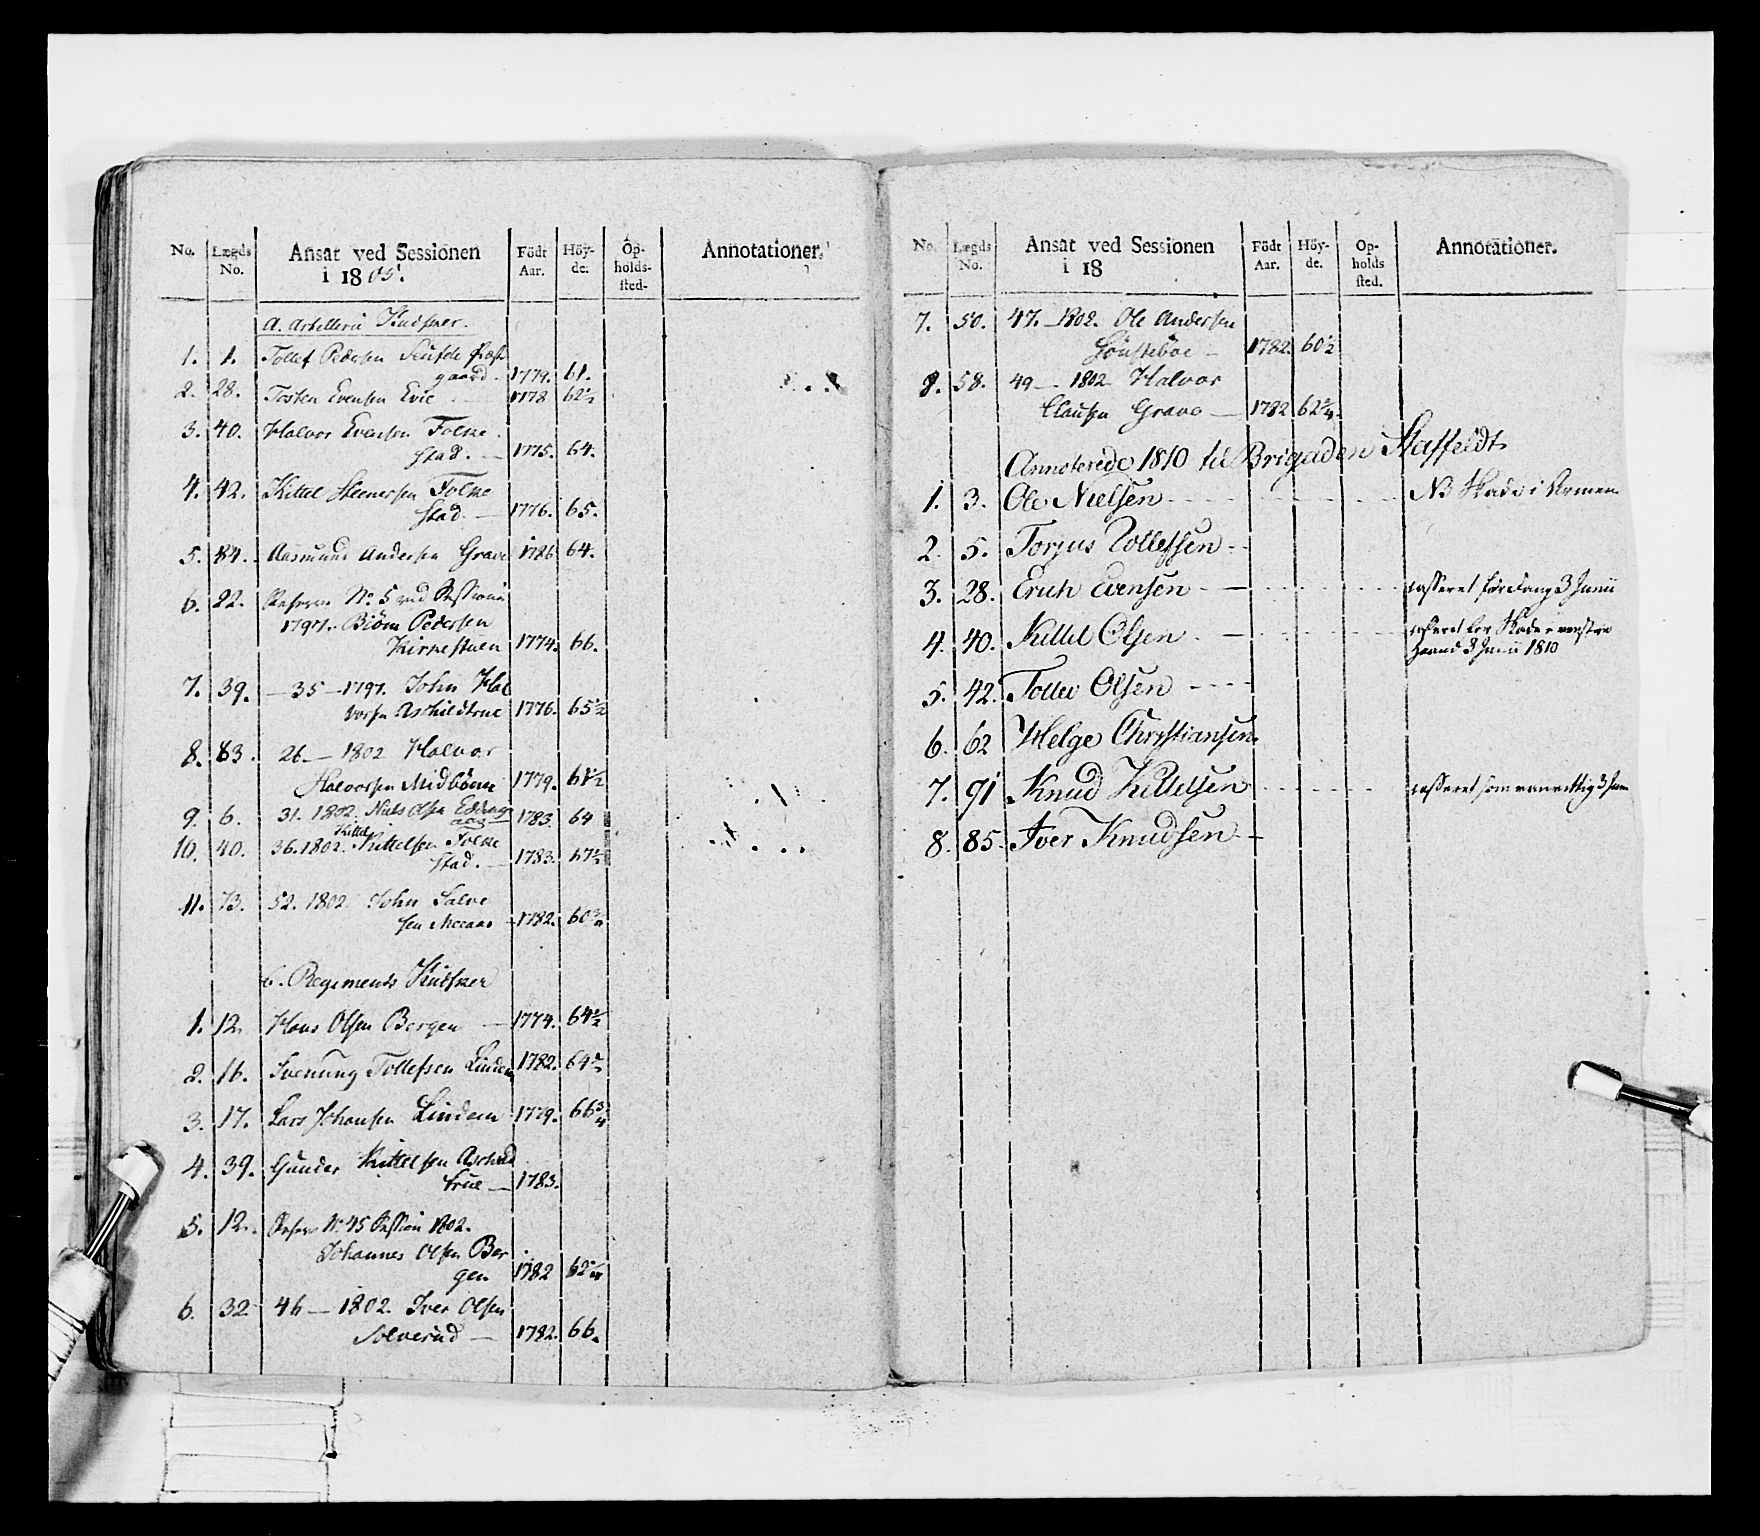 No. Lægds No. Ansat ved Sessionen i 1805. Födt Aar. Höyde. Opholdssted. Annotationer.
a. Artillerie Kudsker.
1. 1. Tollef Pedersen
gaard. 1779. 61.
2. 28. Tosten Evensen Evie 1778 62½
3. 40. Halvor Evensen Folke
stad. — 1775. 64.
4. 42. Kittel Steenersen Folke
stad. — 1776. 65.
5. 84. Aasmund Andersen Grave 1786 64.
6. 22. Reserve No. 5 ved Session
1797. Biörn Pedersen
Kirkestuen 1774. 66.
7. 39. — 35 — 1797. John Hal
vorsen Aschildtrue 1776. 65½
8. 83. 26 — 1802 Halvor
Halvorsen Midböen 1779. 61½
9. 6. 31. 1802. Niels Olsen 1783. 64
10. 40. 36. 1802. Kittel Kittelsen Folke
stad. — 1783. 67½
11. 73. 52. 1802 John Salve
sen 1782. 60¾
b. Regiments Kudsker
1. 12. Hans Olsen Bergen — 1774. 64½
2. 16. Svenung Tollefsen Lindem 1782. 64½
3. 17. Lars Johansen Lindem 1779. 66¾
4. 39. Gunder Kittelsen Aschild
true — 1783.
5. 12. Reserve No. 45 Session 1802.
Johannes Olsen Ber
gen 1782 62¼
6. 32 46 — 1802. Iver Olsen
Solverud — 1782. 66.
No. Lægds No. Ansat ved Sessionen i 18 Födt Aar. Höyde. Opholds sted. Annotationer.
7. 50. 47. — 1802. Ole Andersen
Gönsteböe — 1782. 60½
8. 58. 49 — 1802 Halvor
Clausen Grave — 1782 62¾.
Annoterede 1810 til Brigaden Staffeldt
1. 3. Ole Nielsen NB Skade i Armen
2. 5. Torjus Tollefsen
3. 28. Erich Evensen casseret for 3 Junii
4. 40. Kittil Olsen casseret for Skade i venstre
Haand 3 Junii 1810
5. 42. Tollev Olsen
6. 62 Helge Christiansen
7. 91 Knud Kittelsen casseret som vanvittig 3 Junii
8. 85. Iver Knudsen